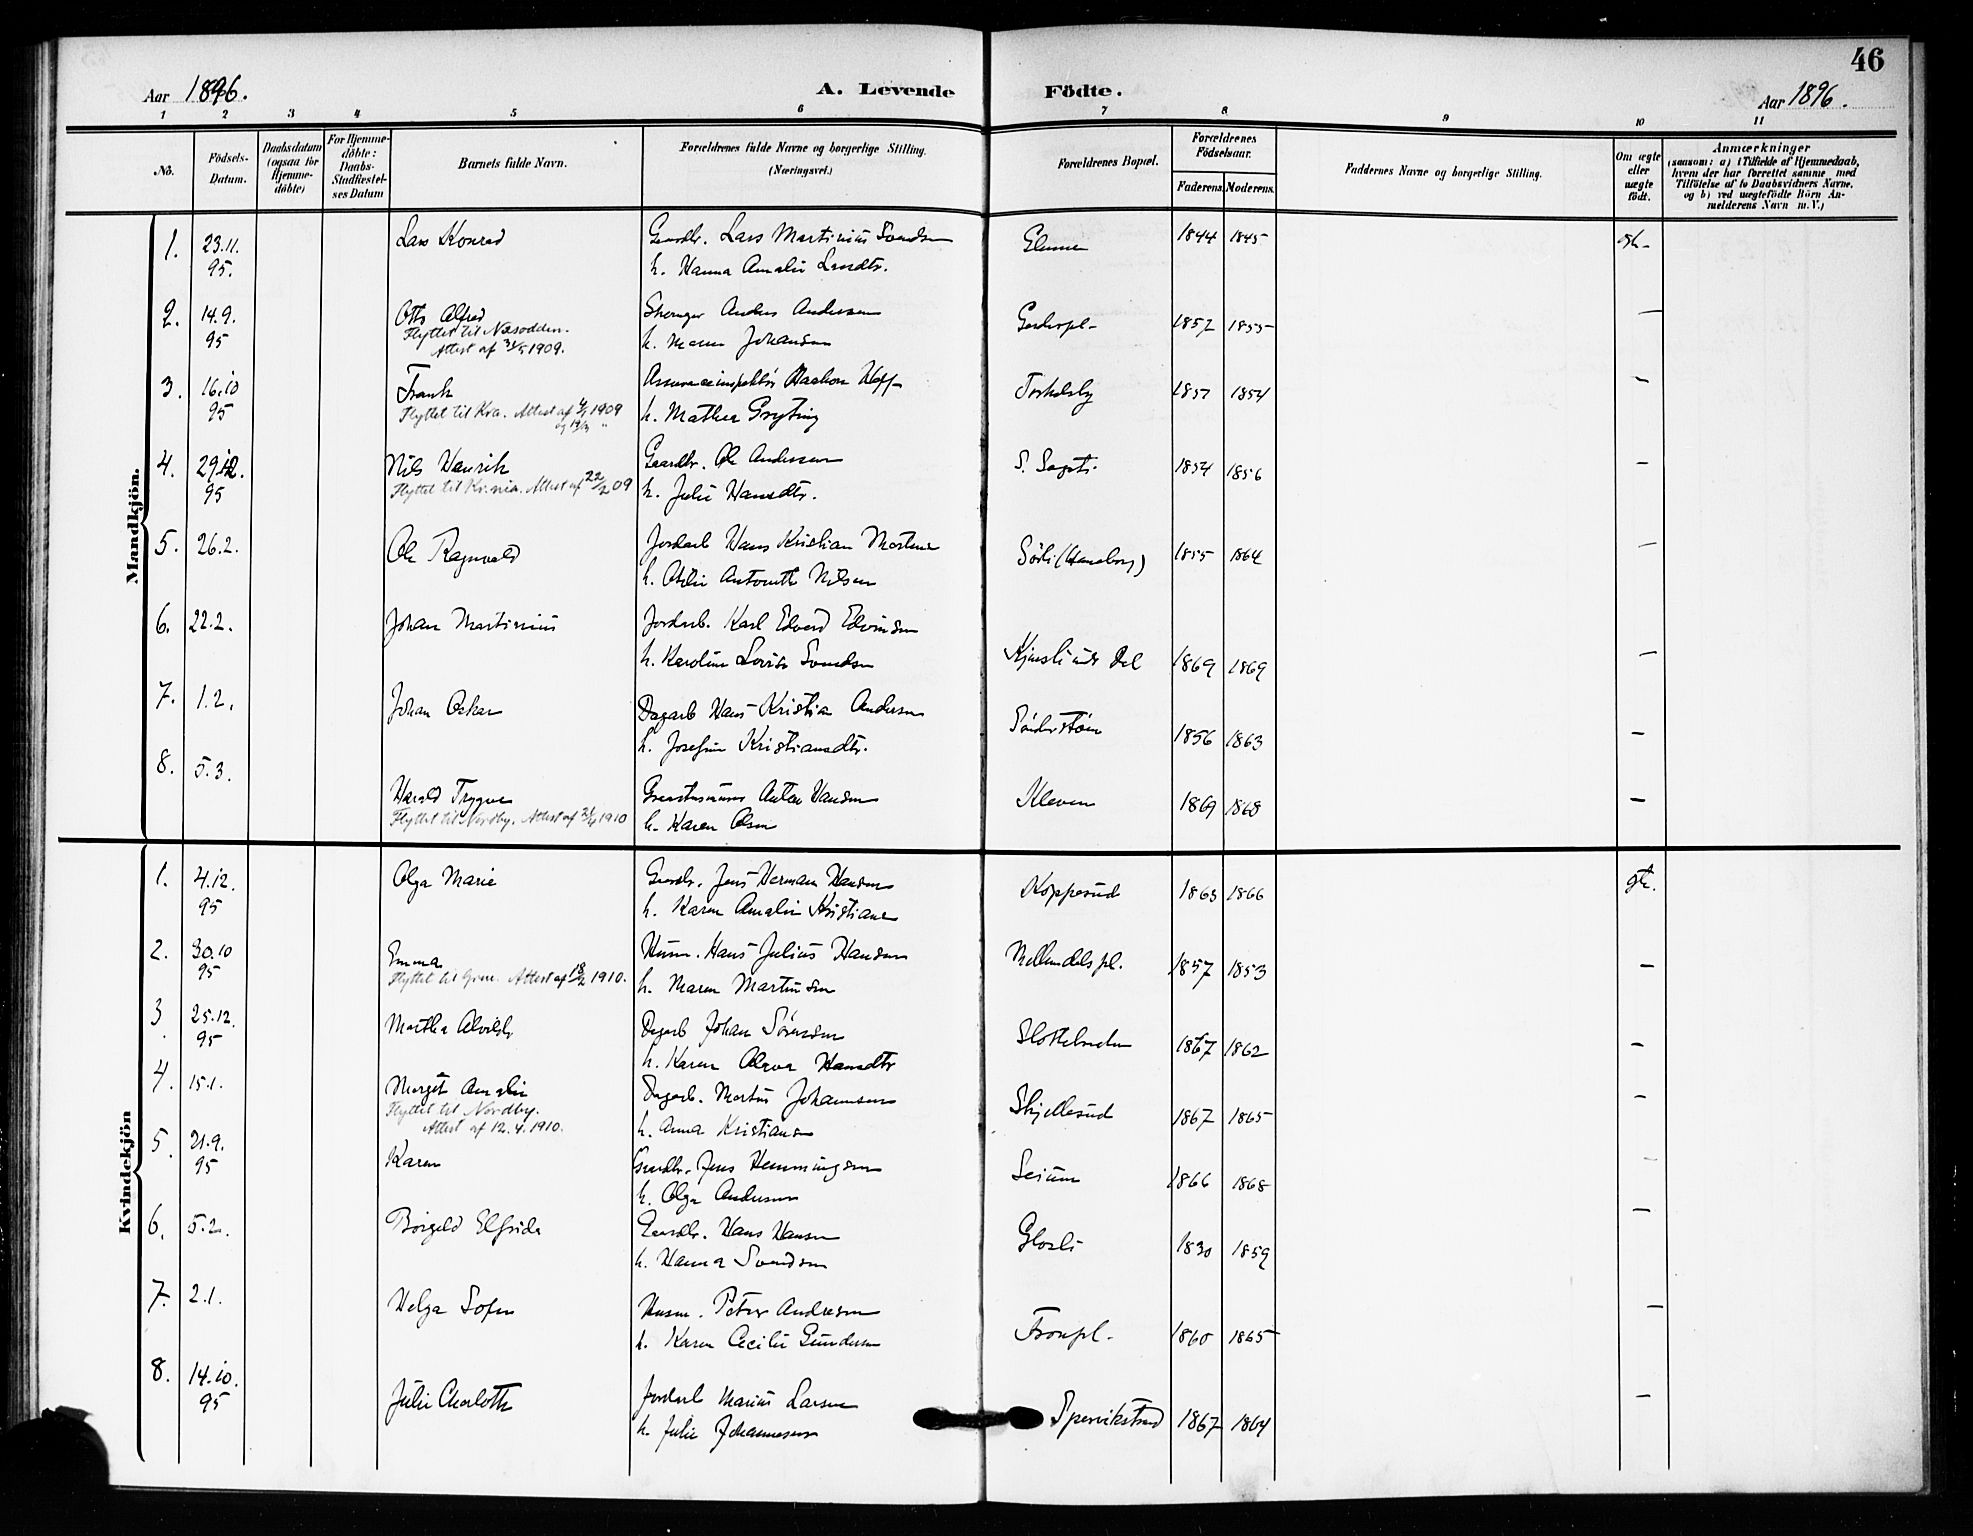 46
Aar 1896.
A. Levende Födte.
Aar 1896.
1 2 3 4 5 6 7 8 9 10 11
No.
Födsels-Datum.
Daabsdatum (ogsaa for Hjemme-döbte)
For Hjemme-döbte: Daabs-Stadfæstel-ses Datum
Barnets fulde Navn.
Forældrenes fulde Navne og borgerlige Stilling. (Næringsvei.)
Forældrenes Bopæl.
Forældrenes Födselsaar.
Faderens. Moderens.
Faddernes Navne og borgerlige Stilling.
Om ægte eller uægte födt.
Anmærkninger
(saasom: a) i Tilfælde af Hjemmedaab, hvem der har forrettet samme med Tilföielse af to Daabsvidners Navne, og b) ved uægtefödte Börn Anmelderens Navn m. V.)
Mandkjön.
1. 23.11. Lars Konrad Gaardbr. Lars Martinius Svendsen Glenne 1844 1845
95. h. Hanna Amalie Larsdtr.
2. 14.9. Otto Alfred Anders Andersen 1857 1855 —
95 Flyttet til Næsodden. h. Maren Johansen
Attest af 1909.
3. 16.10 Frank Assuranceinspektör Haakon Hoff Torkelsby 1857 1854 —
95 Flyttet til Kra. Attest af 1909 h. Mathea Gryting
4. 29.12. Nils Henrik Gaardbr. Ole Andersen 1854 1856 —
95 Flyttet til Kr.nia. Attest af 22/2 09 h. Julie Hansdtr.
5. 26.2. Ole Ragnvald Jordarb Hans Kristian Mortensen Sörli (Haneborg) 1855 1864 —
h. Nilsen
6. 22.2. Johan Martinius Jordarb. Karl Edvard Edvinsen 1869 1869 —
h. Karoline Lovise Svendsen
7. 1.2. Johan Oskar Dagarb Hans Kristian Andersen Sönderstöen 1856 1863 —
h. Josefine Kristiansdtr.
8. 5.3. Harald Trygve Anton Hansen Kleven 1869 1868 —
Flyttet til Nordby. Attest af 1910 h. Karen Olsen
Kvindekjön
1. 4.12. Olga Marie Gaardbr. Jens Herman Hansen Kopperud 1863 1866
95 h. Karen Amalie Kristiansen
2. 30.10 Emma Husm. Hans Julius Hansen 1857 1853 —
95 Flyttet til Attest af 1910. h. Maren Martinsen
3. 25.12. Martha Alvilde Dagarb Johan Sörensen 1867 1862 —
95 h. Karen Oleva Hansdtr
4. 15.1. Margit Amalie Dagarb. Martin Johannesen Skjellerud 1867 1865 —
Flyttet til Nordby. h. Anna Kristiansen
Attest af 12.4.1910.
5. 21.9. Karen Gaardbr. Jens Hemmingsen 1866 1868 —
95 h. Olga Andersen
6. 5.2. Borgeld Elfrida Gaardbr. Hans Hansen Glosli 1830 1859 —
h. Hanna Svendsen
7. 2.1. Helga Sofie Husm. Peter Andresen Fronpl. 1860 1865 —
h. Karen Cecilie Gundersen
8. 14.10. Julie Charlotte Jordarb Marius Larsen Spervikstrand 1867 1864 —
95 h. Julie Johannesen